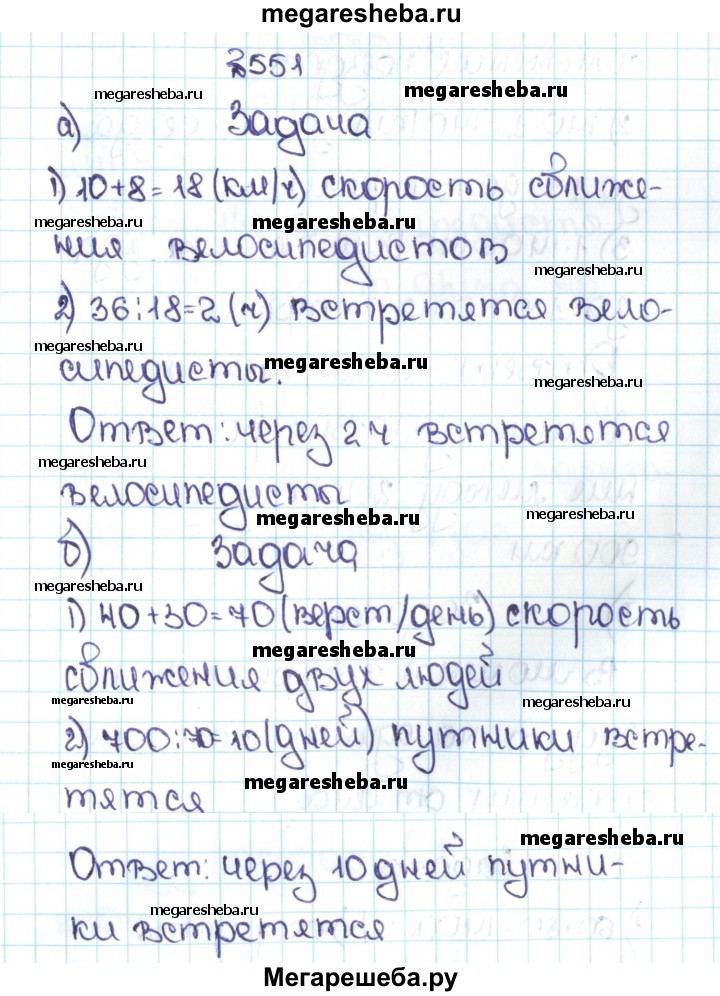 megaresheba.ru
№551
megaresheba.ru
megaresheba.ru
а) Задача
1) 10+8=18 (км/ч) скорость сближе-
megaresheba.ru
megaresheba.ru
ния велосипедистов
megaresheba.ru
2) 36:18=2 (ч) встретятся вело-
megaresheba.ru
megaresheba.ru
сипедисты.
megaresheba.ru
Ответ: через 2 ч встретятся
megaresheba.ru
велосипедисты
megaresheba.ru
megaresheba.ru
б) Задача
megaresheba.ru
1) 40+30=70 (верст/день) скорость
megaresheba.ru
сближения двух людей
megaresheba.ru
megaresheba.ru
2) 700:70=10 (дней) путники встре-
megaresheba.ru
megaresheba.ru
тятся
megaresheba.ru
Ответ: через 10 дней путни-
megaresheba.ru
ки встретятся
Мегарешеба.ру